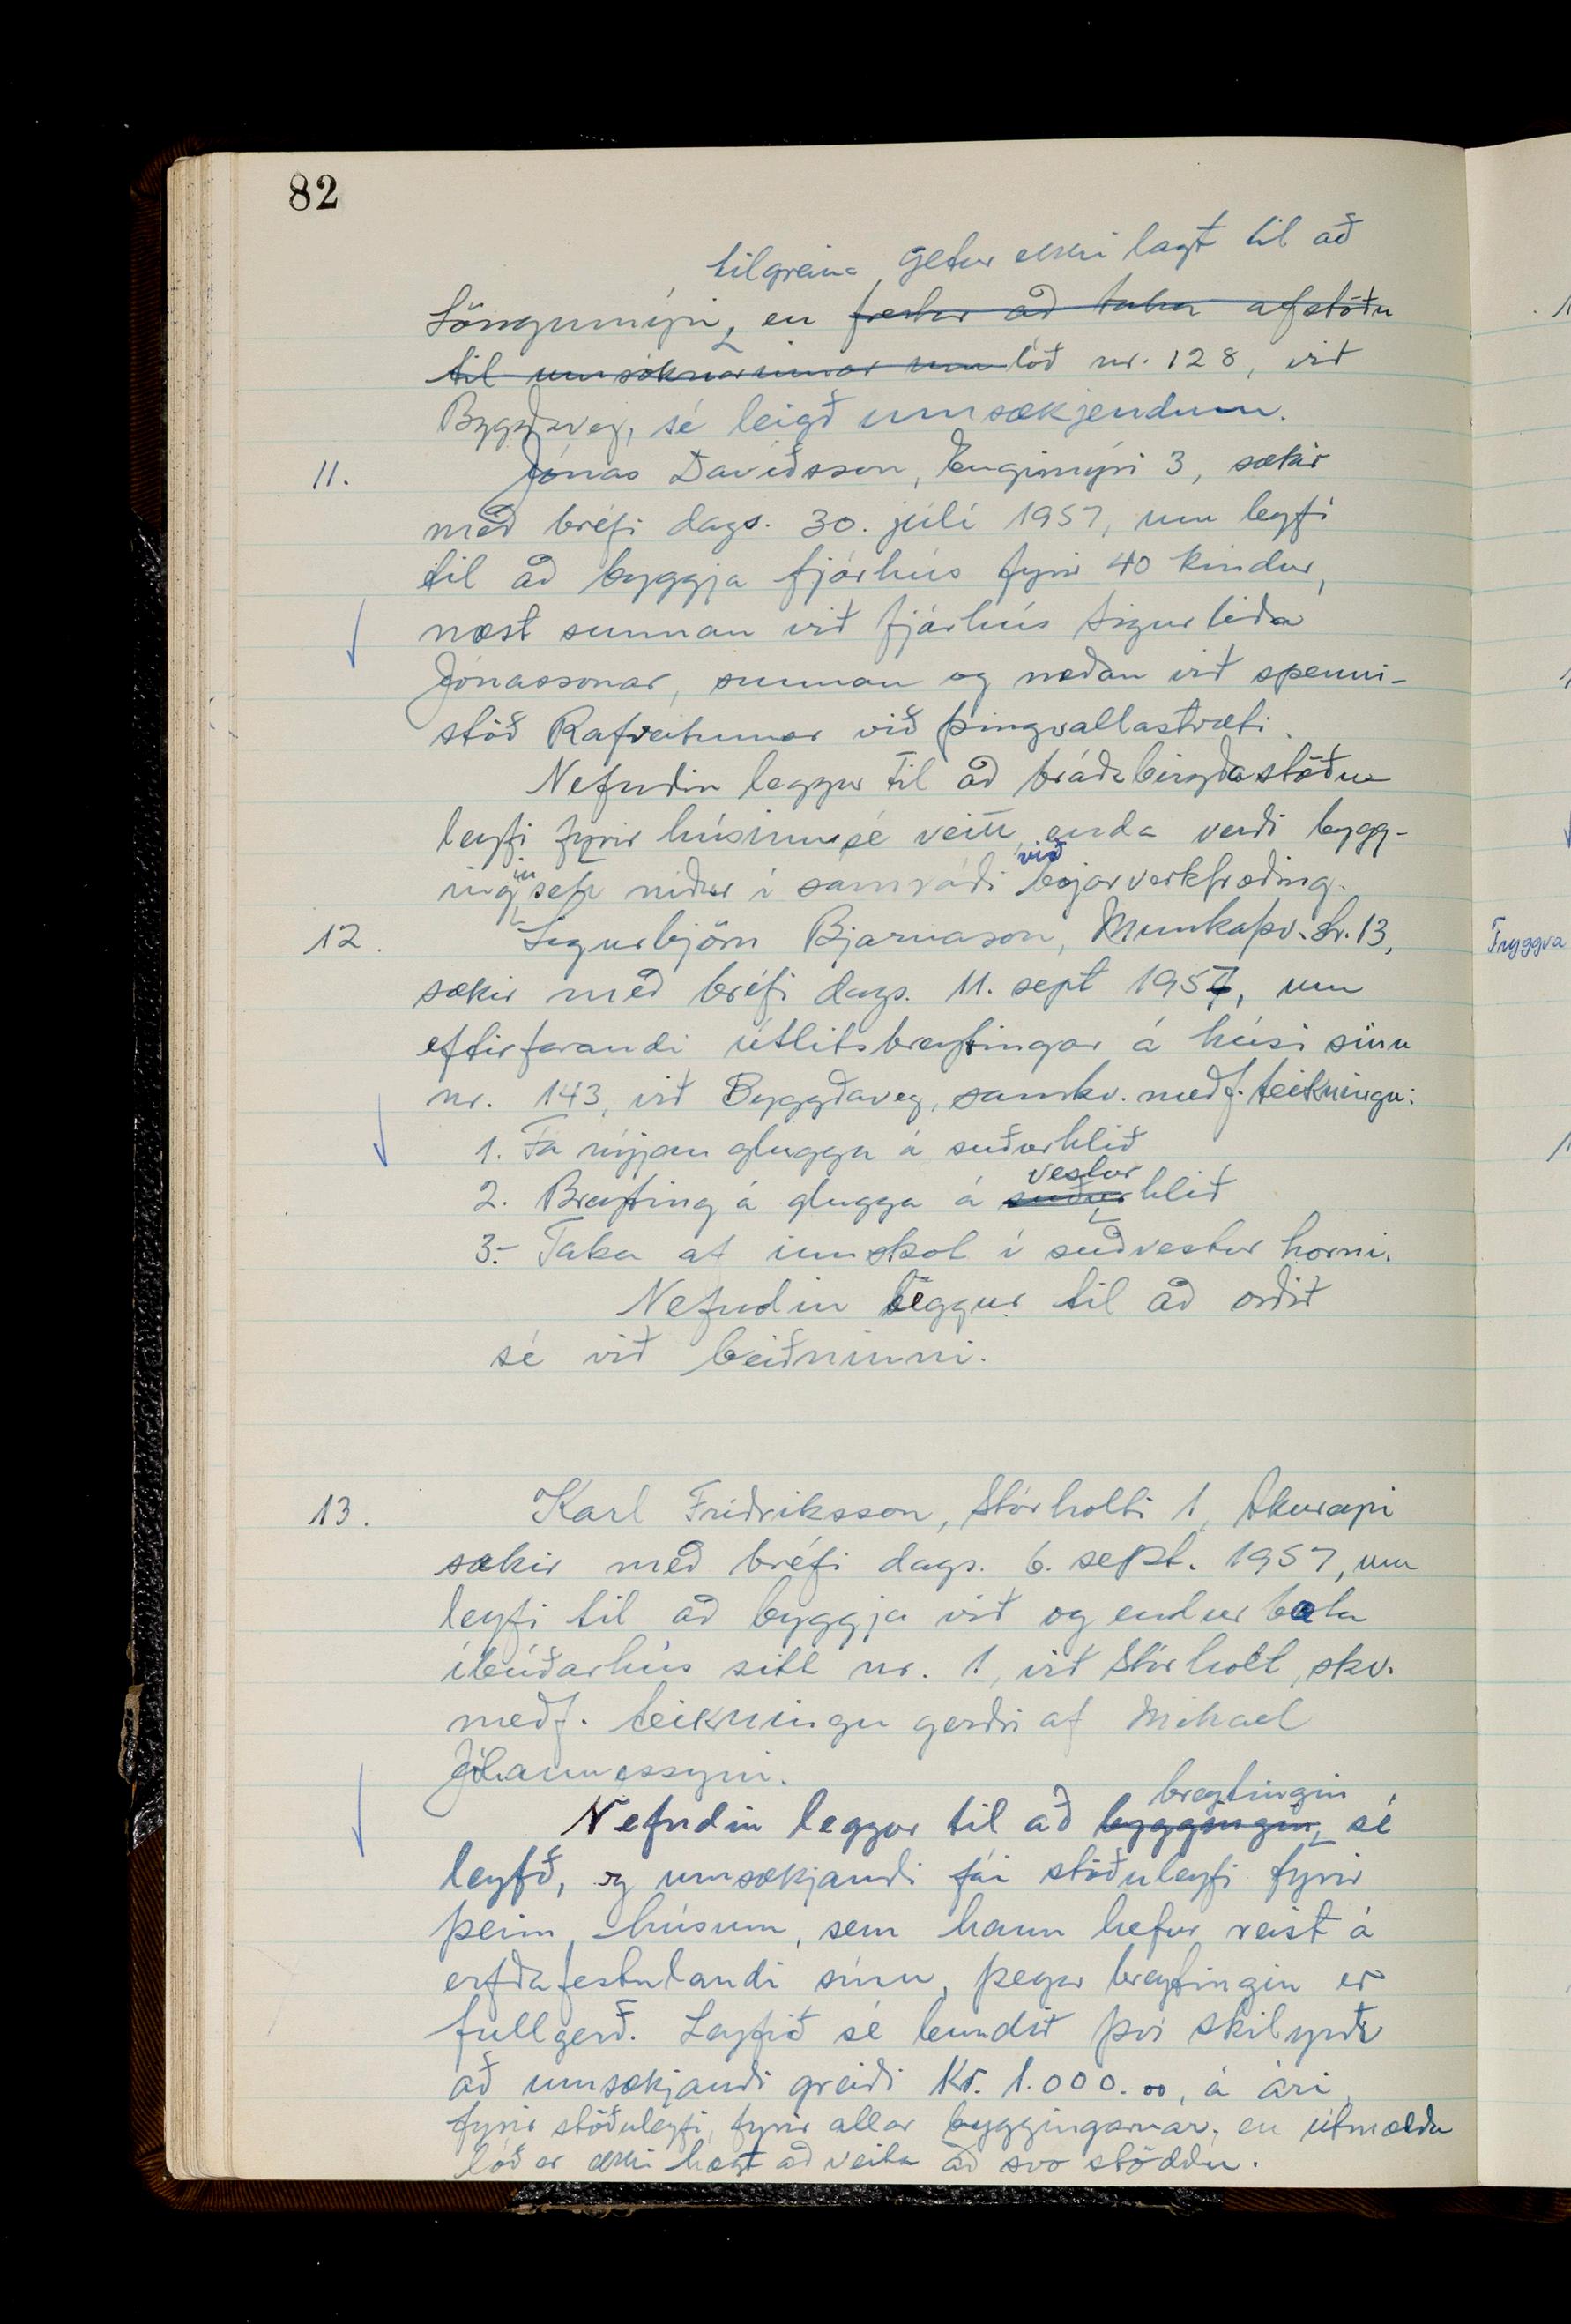 82
tilgreina getur ekki lagt til að
Löngumýri, en frestar að taka afstöðu
til umsóknarinnar um lóð nr. 128, við
Byggðaveg, sé leigð umsækjendum.
11. Jónas Davíðsson, Engimýri 3, sækir
með bréfi dags. 30. júlí 1957, um leyfi
til að byggja fjárhús fyrir 40 kindur,
næst sunnan við fjárhús Sigurliða
Jónassonar, sunnan og neðan við spenni-
stöð Rafveitunnar við Þingvallastræti.
Nefndin leggur til að bráðabirgðastöðu
leyfi fyrir húsinu sé veitt, enda verði bygg-
ingin sett niður í samráði við bæjarverkfræðing.
12. Sigurbjörn Bjarnason, Munkaþv.str. 13,
sækir með bréfi dags. 11. sept 1957, um
eftirfarandi útlitsbreytingar á húsi sínu
nr. 143, við Byggðaveg, samkv. meðf. teikningu:
1. Fá nýjan glugga á suðurhlið
2. Breyting á glugga á suður vestur hlið
3.- Taka af innskot í suðvestur horni.
Nefndin leggur til að orðið
sé við beiðninni.
13. Karl Friðriksson, Stórholti 1, Akureyri
sækir með bréfi dags. 6. sept. 1957, um
leyfi til að byggja við og endurbæta
íbúðarhús sitt nr. 1, við Stórholt, skv.
meðf. teikningu gerðri af Mikael
Jóhannessyni.
Nefndin leggur til að byggingin breytingin sé
leyfð, og umsækjandi fái stöðuleyfi fyrir
þeim húsum, sem hann hefur reist á
erfðafestulandi sínu, þegar breytingin er
fullgerð. Leyfið sé bundið því skilyrði
að umsækjandi greiði Kr. 1.000.00, á ári
fyrir stöðuleyfi, fyrir allar byggingarnar, en útmælda
lóð er ekki hægt að veita að svo stöddu.
Tryggva